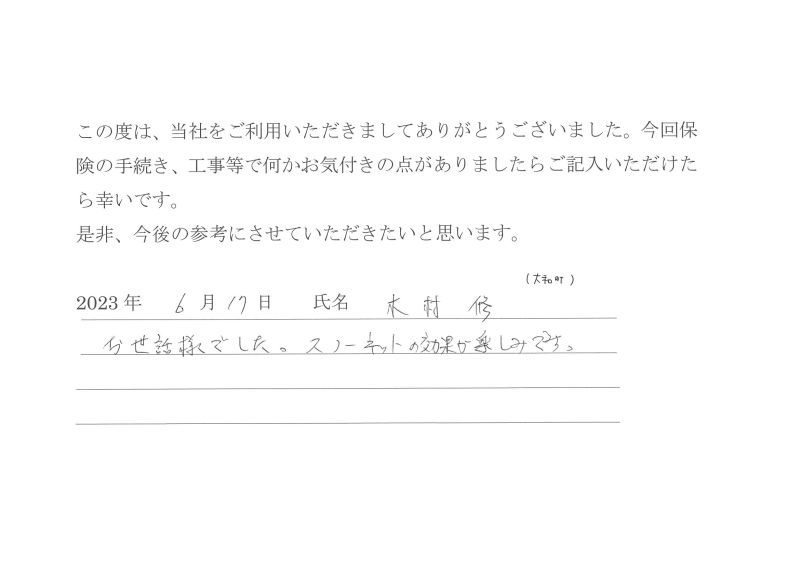 この度は、当社をご利用いただきましてありがとうございました。今回保
険の手続き、工事等で何かお気付きの点がありましたらご記入いただけた
ら幸いです。
是非、今後の参考にさせていただきたいと思います。
(大和町)
2023年 6月17日 氏名 木村 修
お世話様でした。スノーネットの効果が楽しみです。